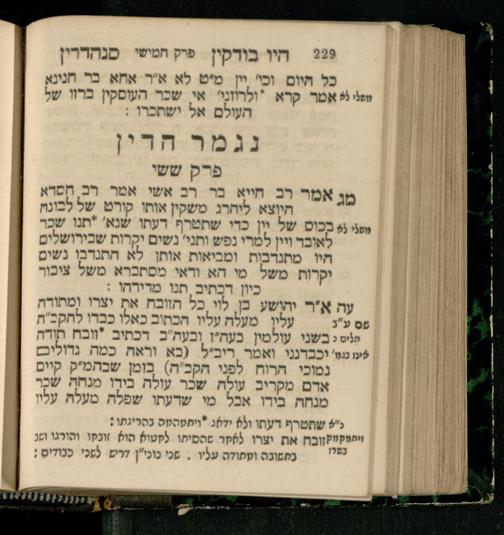 229 היו בודקין פרק חמישי סנהדרין
כל היום וכי׳ יין מ״ט לא א״ר אחא בר חנינא
משלי לא אמר קרא *ולרוזני׳ אי שכר העוסקין ברזו של
העולם אל ישתכרו :
נגמר הדין
פרק ששי
מג אמר רב חייא בר רב אשי אמר רב חסדא
היוצא ליהרג משקין אותו קורט של לבונה
משלי לא בכוס של יין כדי שתטרף דעתו שנא׳ *תנו שכר
לאובד ויין למרי נפש ותני׳ נשים יקרות שבירושלים
היו מתנדבות ומביאות אותן לא התנדבו נשים
יקרות משל מי הא ודאי מסתברא משל ציבור
כיון דכתיב תנו מדידהו :
עה א״ר יהושע בן לוי כל הזובח את יצרו ומתודה
שם ע״ב עליו מעלה עליו הכתוב כאלו כבדו להקב״ה
תלים נ בשני עולמין בעה״ז ובעה״ב דכתיב *זובח תודה
אינו בגמ׳ יכבדנני ואמר ריב״ל (בא וראה כמה גדולים
נמוכי הרוח לפני הקב״ה) בזמן שבהמ״ק קיים
אדם מקריב עולה שכר עולה בידו מנחה שכר
מנחה בידו אבל מי שדעתו שפלה מעלה עליו
כ״א שתטרף דעתו ולא ידאג *ויתמהמה בהריגתו :
זובח את יצרו לאחר שהסיתו לחטוא הוא זובחו והורגו ושב
בשרו בתשובה ומתודה עליו . שני נוני״ן דריש לשני כבודים :